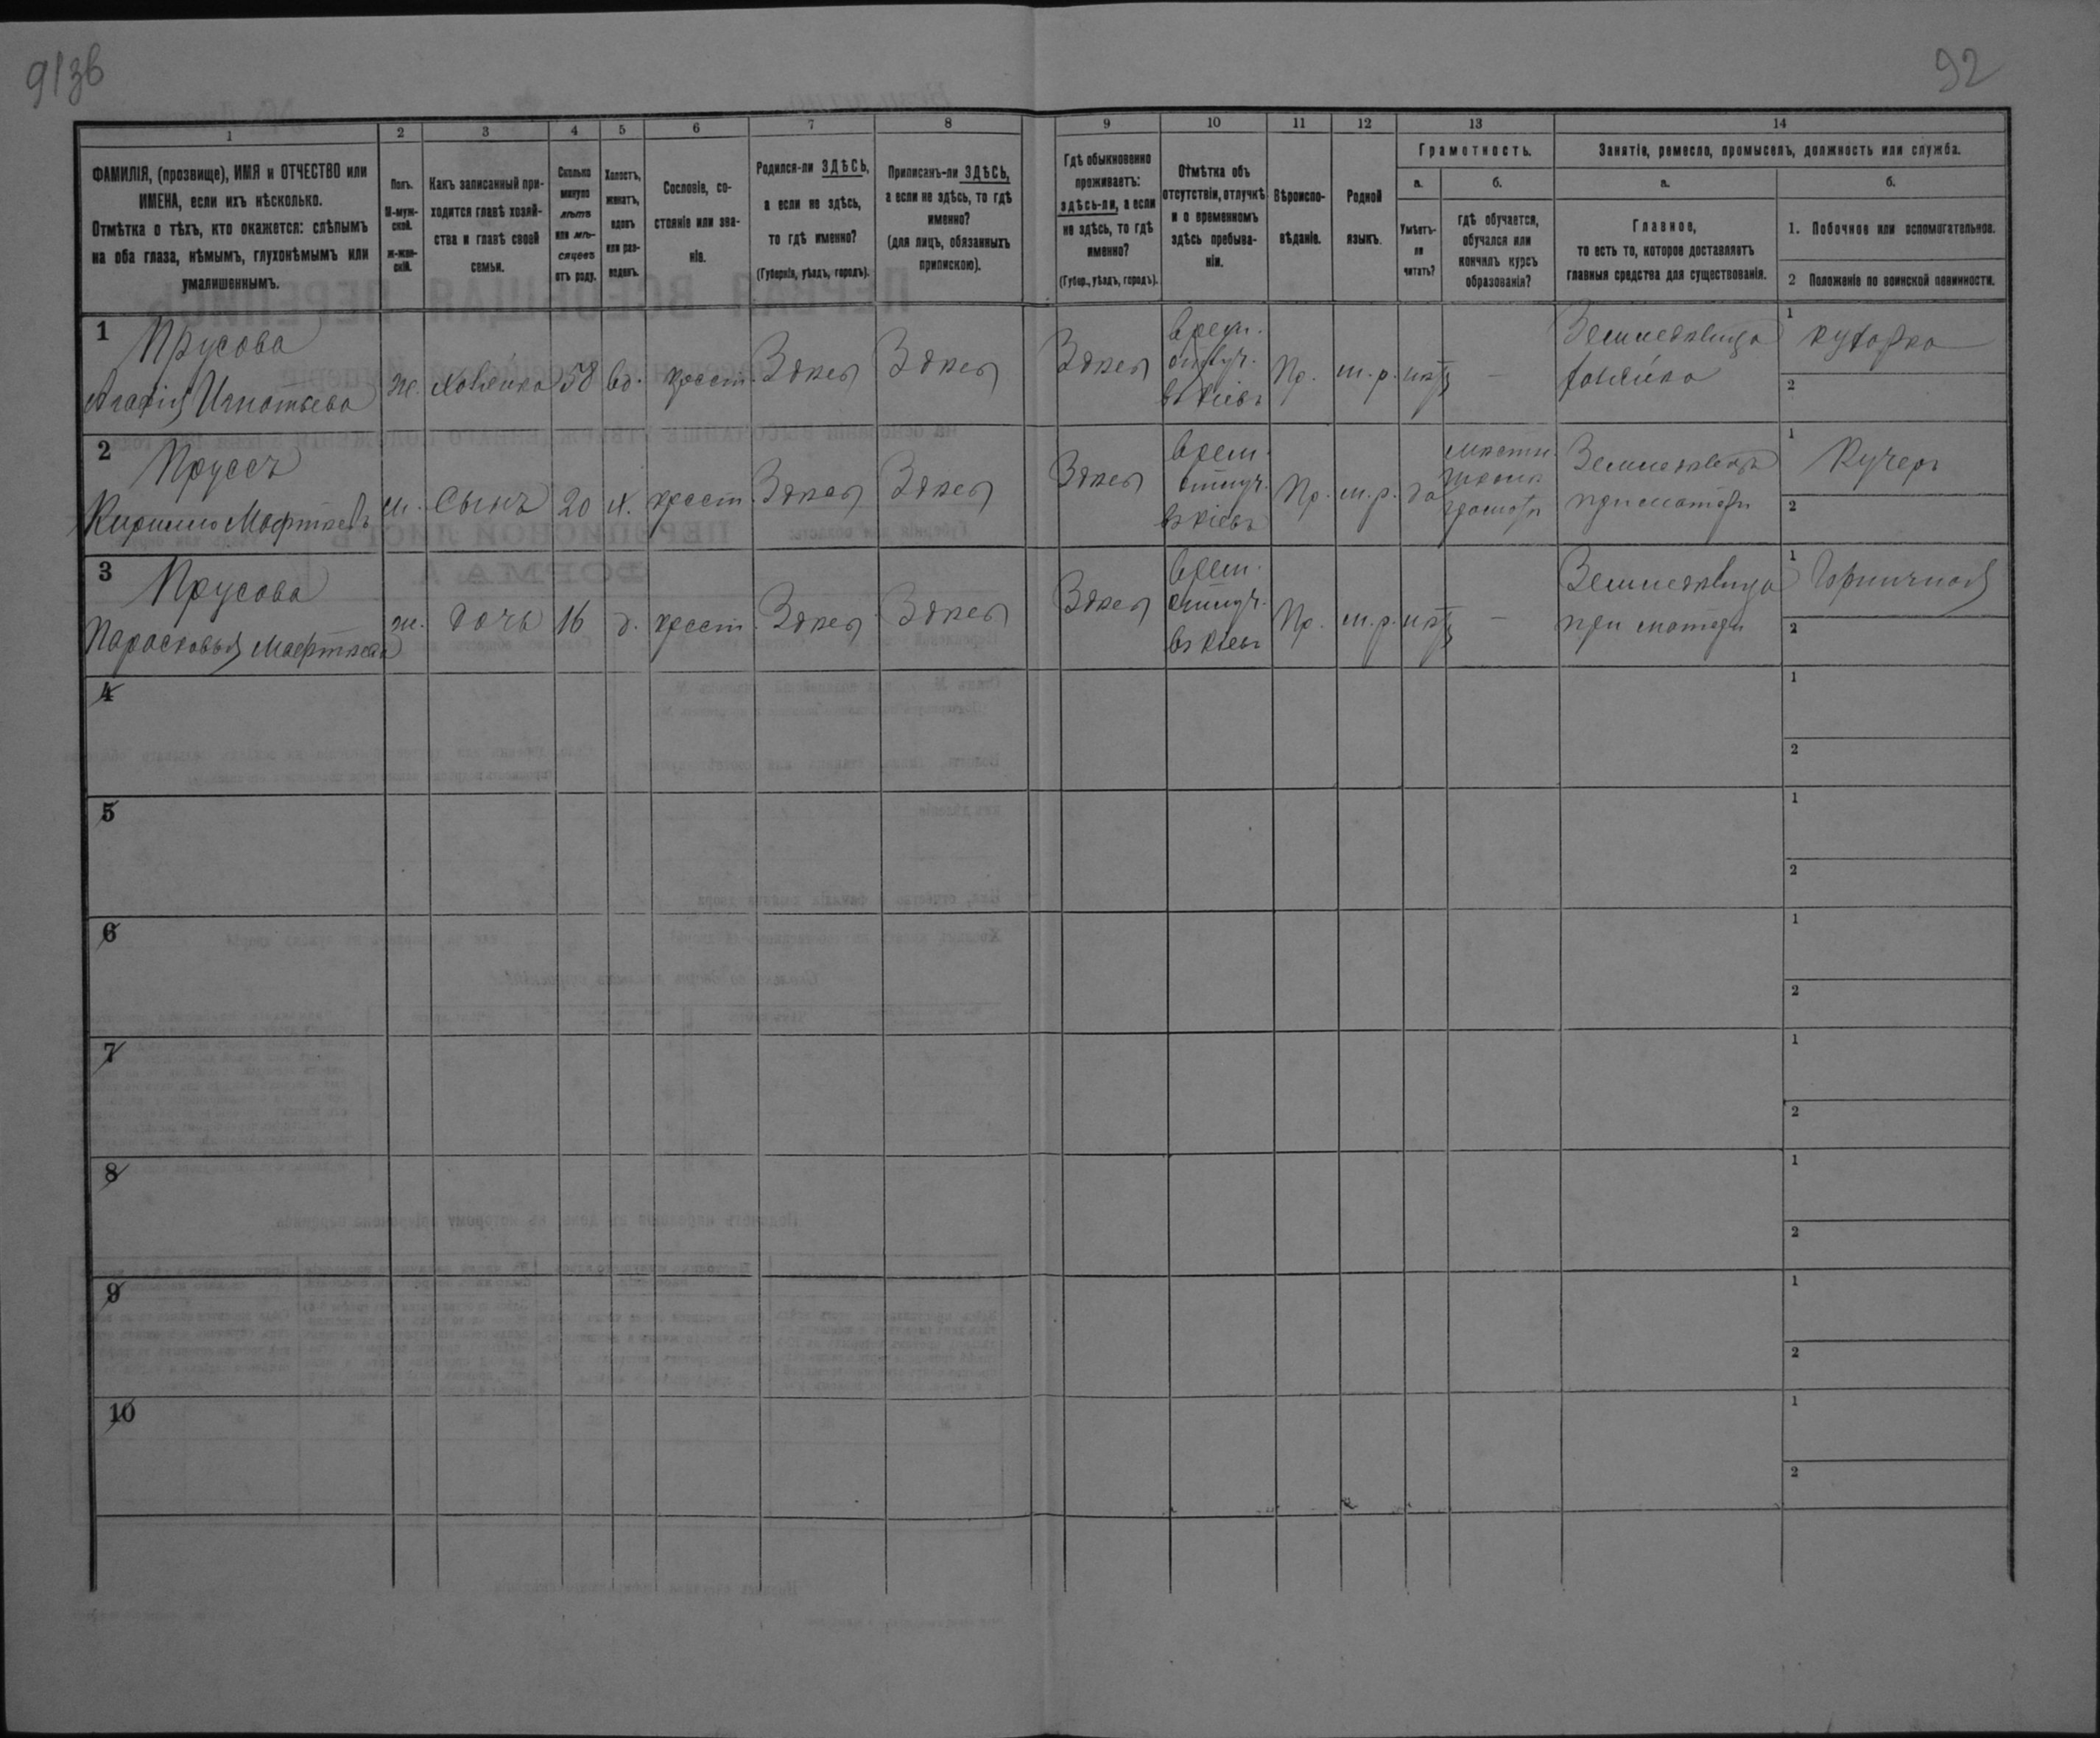 91зв
92
1
2
3
4
5
6
7
8
9
10
11
12
13
14
ФАМИЛІЯ, (прозвище), ИМЯ и ОТЧЕСТВО или
ИМЕНА, если ихъ нѣсколько.
Отмѣтка о тѣхъ, кто окажется: слѣпымъ
на оба глаза, нѣмымъ, глухонѣмымъ или
умалишеннымъ.
Полъ.
М-муж-
ской.
ж-жен-
скій.
Какъ записанный при-
ходится главѣ хозяй-
ства и главѣ своей
семьи.
Сколько
минуло
лѣтъ
или мѣ-
сяцевъ
отъ роду.
Холостъ,
женатъ,
вдовъ
или раз-
веденъ.
Сословіе, со-
стояніе или зва-
ніе.
Родился-ли ЗДѢСЬ,
а если не здѣсь,
то гдѣ именно?
(Губернія, уѣздъ, городъ).
Приписанъ-ли ЗДѢСЬ,
а если не здѣсь, то гдѣ
именно?
(для лицъ, обязанныхъ
припискою).
Гдѣ обыкновенно
проживаетъ:
здѣсь-ли, а если
не здѣсь, то гдѣ
именно?
(Губер., уѣздъ, городъ).
Отмѣтка объ
отсутствіи, отлучкѣ
и о временномъ
здѣсь пребыва-
ніи.
Вѣроиспо-
вѣданіе.
Родной
языкъ.
Грамотность.
а.
Умѣетъ-
ли
читать?
б.
гдѣ обучается,
обучался или
кончилъ курсъ
образованія?
Занятіе, ремесло, промыселъ, должность или служба.
а.
Главное,
то есть то, которое доставляетъ
главныя средства для существованія.
б.
1. Побочное или вспомогательное.
2 Положеніе по воинской повинности.
1
Прусова
Агафія Игнатьева
ж.
хозяйка
58
вд.
крест.
Здѣсь
Здѣсь
Здѣсь
врем.
отлуч.
въ Кіевъ
Пр.
м. р.
нѣтъ
—
Землед
хозяйка
1 кухарка
2
2
Пруссъ
Кирилло
м.
Сынъ
20
х.
крест.
Здѣсь
Здѣсь
Здѣсь
врем.
отлуч.
въ Кіевъ
Пр.
м. р.
да
школа
грамоты
Земледѣлецъ
при матери
1 Кучеръ
2
3
Прусова
Парасковья
ж.
дочь
16
д.
крест.
Здѣсь
Здѣсь
Здѣсь
врем.
отлуч.
въ Кіевъ
Пр.
м. р.
нѣтъ
—
при матери
1 Горничная
2
4
1
2
5
1
2
6
1
2
7
1
2
8
1
2
9
1
2
10
1
2